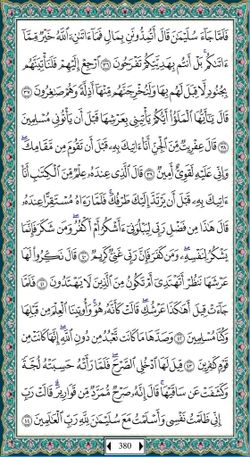 فَلَمَّا جَآءَ سُلَيْمَٰنَ قَالَ أَتُمِدُّونَنِ بِمَالٍ فَمَآ ءَاتَىٰنِۦَ ٱللَّهُ خَيْرٌ مِّمَّآ
ءَاتَىٰكُم بَلْ أَنتُم بِهَدِيَّتِكُمْ تَفْرَحُونَ ٣٦ ٱرْجِعْ إِلَيْهِمْ فَلَنَأْتِيَنَّهُم
بِجُنُودٍ لَّا قِبَلَ لَهُم بِهَا وَلَنُخْرِجَنَّهُم مِّنْهَآ أَذِلَّةً وَهُمْ صَٰغِرُونَ ٣٧
قَالَ يَٰٓأَيُّهَا ٱلْمَلَؤُا۟ أَيُّكُمْ يَأْتِينِى بِعَرْشِهَا قَبْلَ أَن يَأْتُونِى مُسْلِمِينَ
٣٨ قَالَ عِفْرِيتٌ مِّنَ ٱلْجِنِّ أَنَا۠ ءَاتِيكَ بِهِۦ قَبْلَ أَن تَقُومَ مِن مَّقَامِكَ
وَإِنِّى عَلَيْهِ لَقَوِىٌّ أَمِينٌ ٣٩ قَالَ ٱلَّذِى عِندَهُۥ عِلْمٌ مِّنَ ٱلْكِتَٰبِ أَنَا۠
ءَاتِيكَ بِهِۦ قَبْلَ أَن يَرْتَدَّ إِلَيْكَ طَرْفُكَ فَلَمَّا رَءَاهُ مُسْتَقِرًّا عِندَهُۥ
قَالَ هَٰذَا مِن فَضْلِ رَبِّى لِيَبْلُوَنِىٓ ءَأَشْكُرُ أَمْ أَكْفُرُ وَمَن شَكَرَ فَإِنَّمَا
يَشْكُرُ لِنَفْسِهِۦ وَمَن كَفَرَ فَإِنَّ رَبِّى غَنِىٌّ كَرِيمٌ ٤٠ قَالَ نَكِّرُوا۟ لَهَا
عَرْشَهَا نَنظُرْ أَتَهْتَدِىٓ أَمْ تَكُونُ مِنَ ٱلَّذِينَ لَا يَهْتَدُونَ ٤١ فَلَمَّا
جَآءَتْ قِيلَ أَهَٰكَذَا عَرْشُكِ قَالَتْ كَأَنَّهُۥ هُوَ وَأُوتِينَا ٱلْعِلْمَ مِن قَبْلِهَا
وَكُنَّا مُسْلِمِينَ ٤٢ وَصَدَّهَا مَا كَانَت تَّعْبُدُ مِن دُونِ ٱللَّهِ إِنَّهَا كَانَتْ مِن
قَوْمٍ كَٰفِرِينَ ٤٣ قِيلَ لَهَا ٱدْخُلِى ٱلصَّرْحَ فَلَمَّا رَأَتْهُ حَسِبَتْهُ لُجَّةً
وَكَشَفَتْ عَن سَاقَيْهَا قَالَ إِنَّهُۥ صَرْحٌ مُّمَرَّدٌ مِّن قَوَارِيرَ قَالَتْ رَبِّ
إِنِّى ظَلَمْتُ نَفْسِى وَأَسْلَمْتُ مَعَ سُلَيْمَٰنَ لِلَّهِ رَبِّ ٱلْعَٰلَمِينَ ٤٤
380